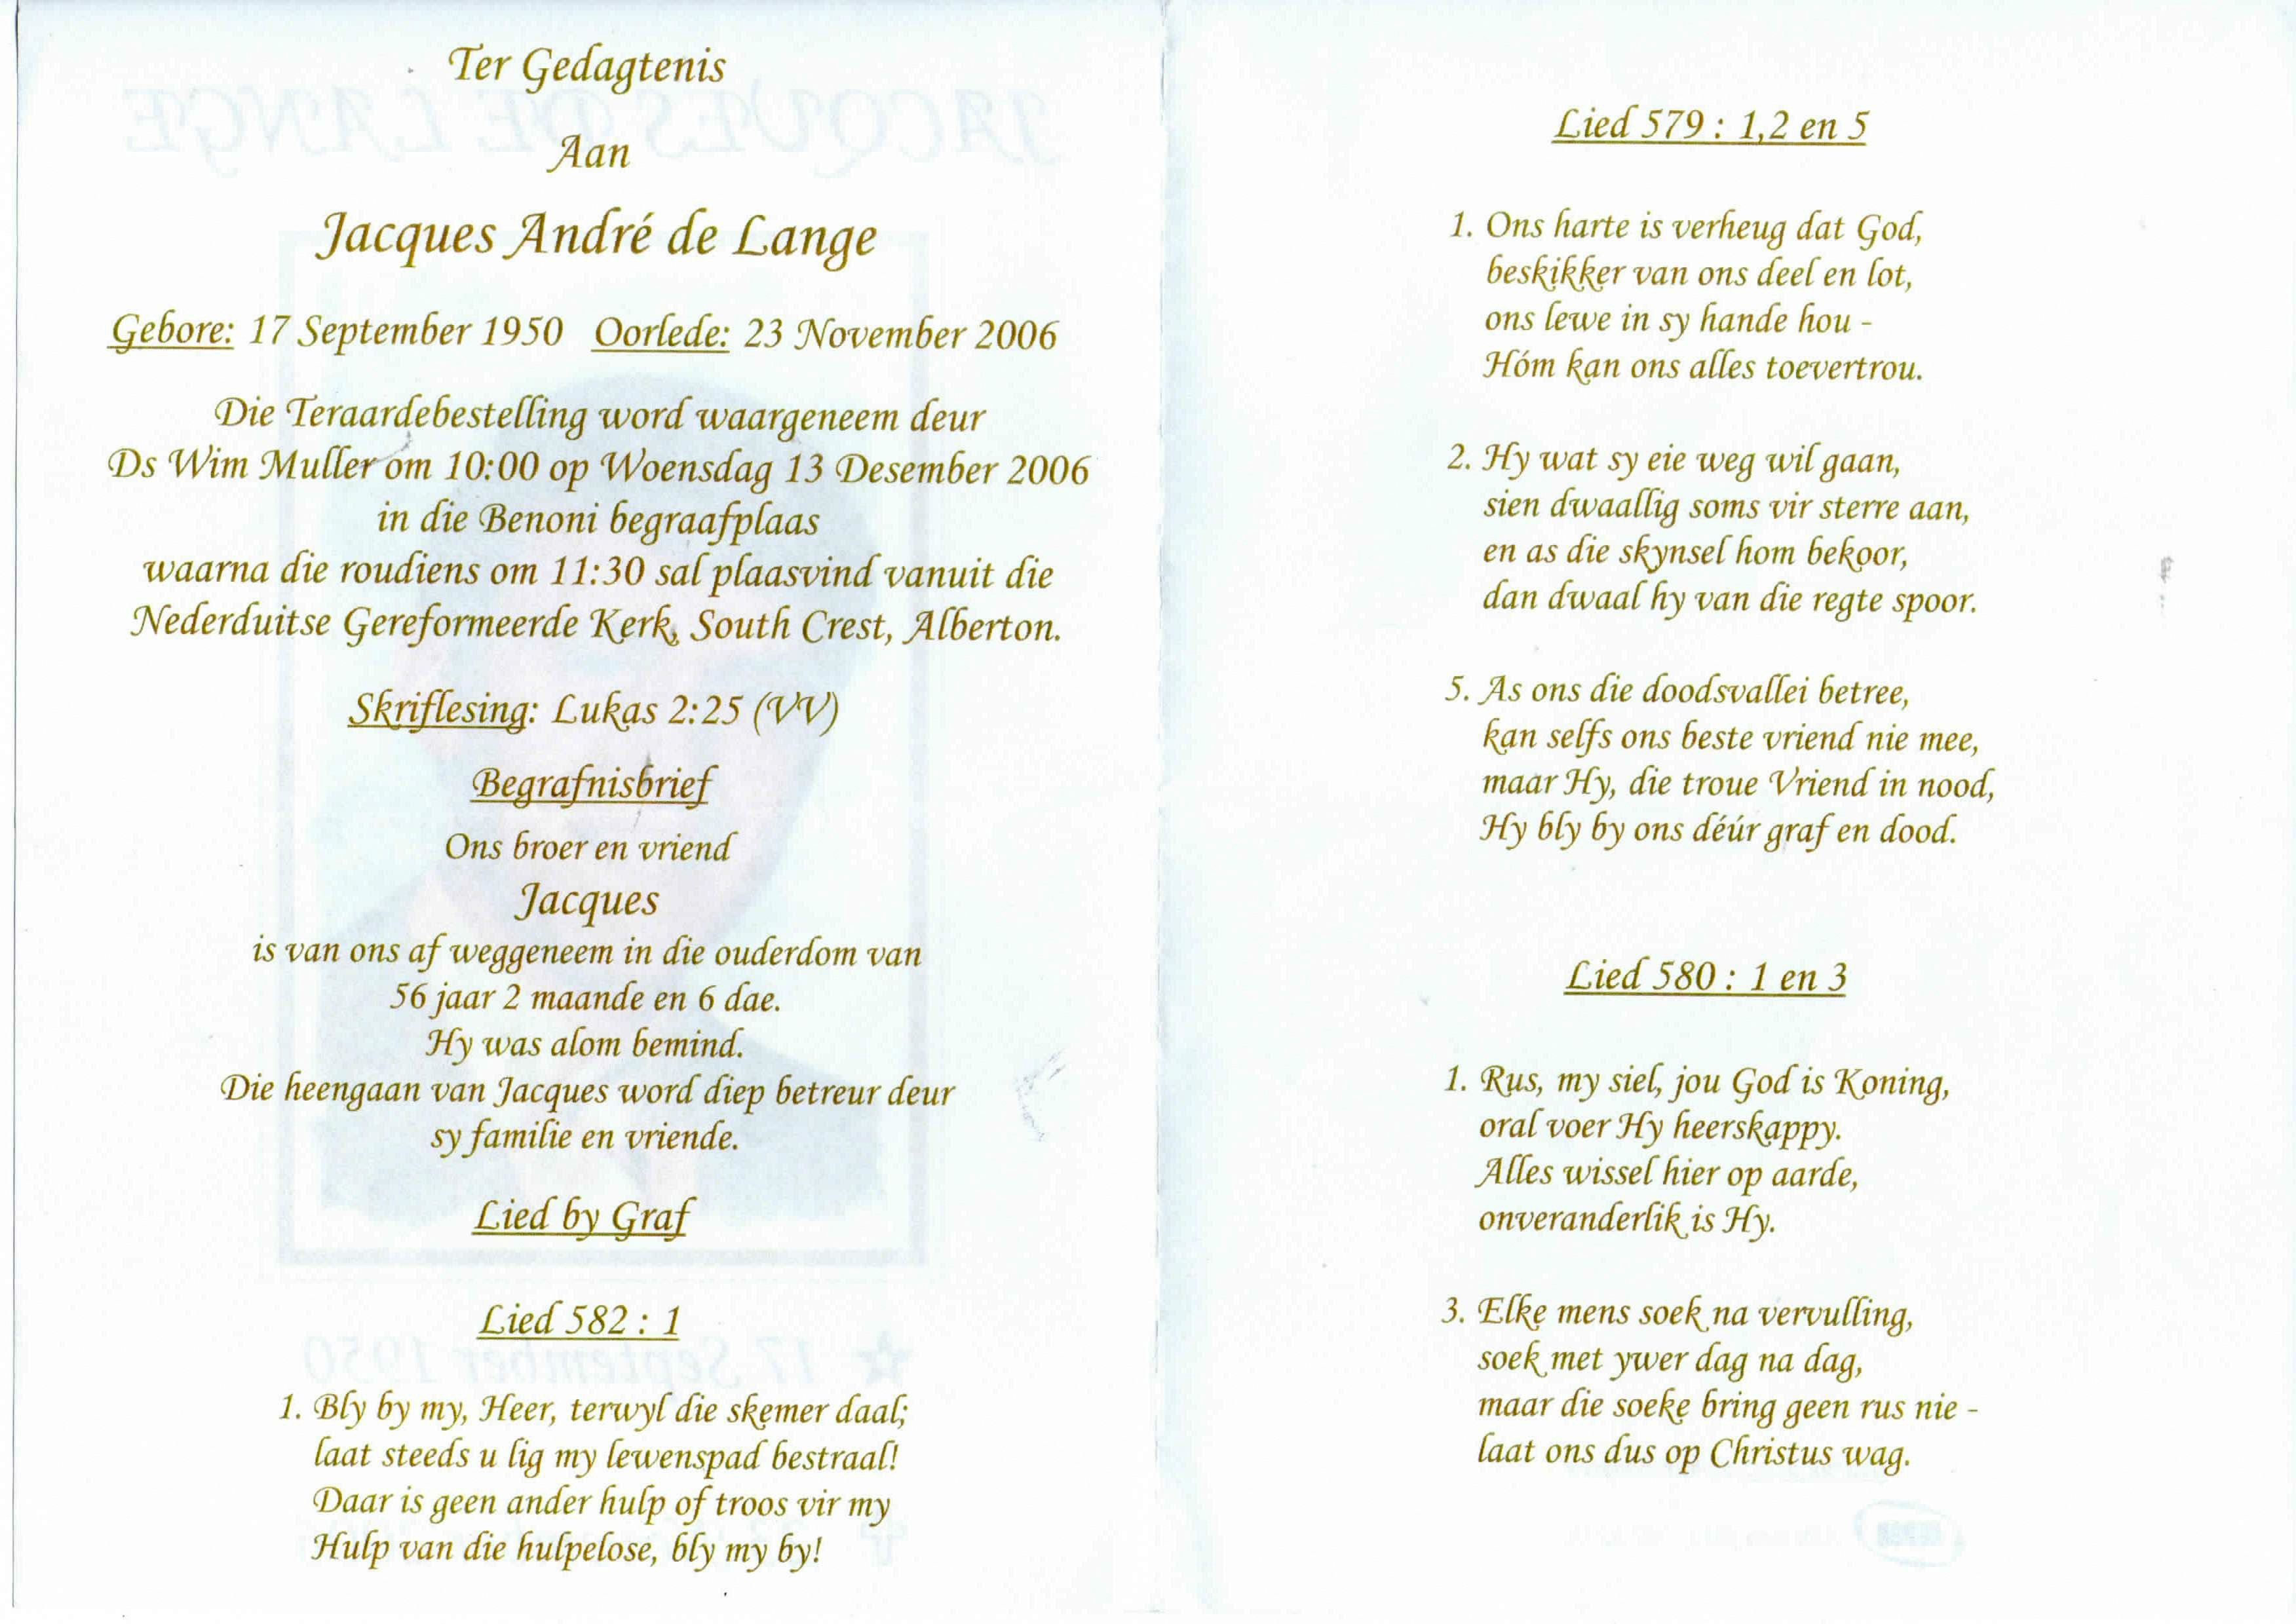 Ter Gedagtenis
Aan
Jacques André de Lange
Gebore: 17 September 1950 Oorlede: 23 November 2006
Die Teraardebestelling word waargeneem deur
Ds Wim Muller om 10:00 op Woensdag 13 Desember 2006
in die Benoni begraafplaas
waarna die roudiens om 11:30 sal plaasvind vanuit die
Nederduitse Gereformeerde Kerk, South Crest, Alberton.
Skriflesing: Lukas 2:25 (VV)
Begrafnisbrief
Ons broer en vriend
Jacques
is van ons af weggeneem in die ouderdom van
56 jaar 2 maande en 6 dae.
Hy was alom bemind.
Die heengaan van Jacques word diep betreur deur
sy familie en vriende.
Lied by Graf
Lied 582 : 1
1. Bly by my, Heer, terwyl die skemer daal;
laat steeds u lig my lewenspad bestraal!
Daar is geen ander hulp of troos vir my
Hulp van die hulpelose, bly my by!
Lied 579 : 1,2 en 5
1. Ons harte is verheug dat God,
beskikker van ons deel en lot,
ons lewe in sy hande hou -
Hóm kan ons alles toevertrou.
2. Hy wat sy eie weg wil gaan,
sien dwaallig soms vir sterre aan,
en as die skynsel hom bekoor,
dan dwaal hy van die regte spoor.
5. As ons die doodsvallei betree,
kan selfs ons beste vriend nie mee,
maar Hy, die troue Vriend in nood,
Hy bly by ons déúr graf en dood.
Lied 580 : 1 en 3
1. Rus, my siel, jou God is Koning,
oral voer Hy heerskappy.
Alles wissel hier op aarde,
onveranderlik is Hy.
3. Elke mens soek na vervulling,
soek met ywer dag na dag,
maar die soeke bring geen rus nie -
laat ons dus op Christus wag.
JACQUES DE LANGE
17 September 1950